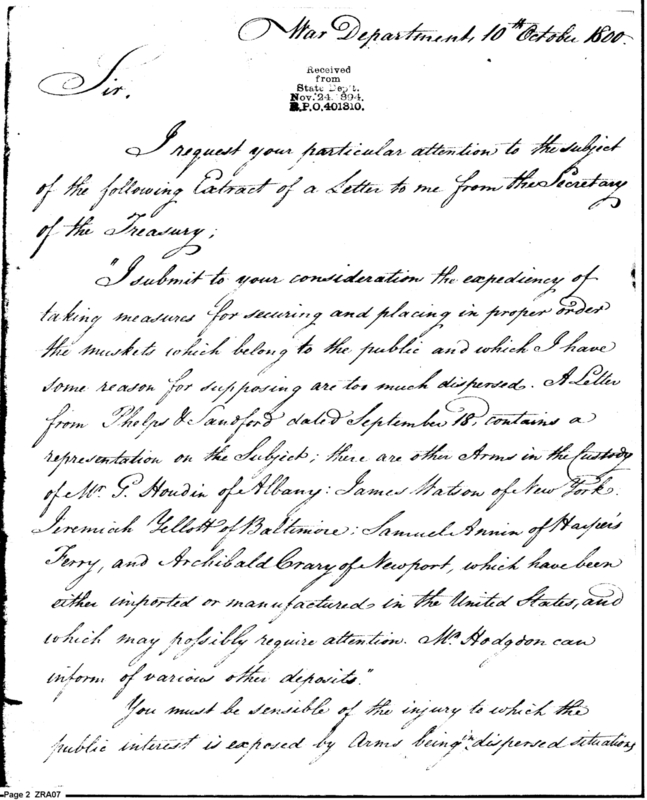 War Department, 10th October 1800.
Received
from
State Dep't.
Nov. 24. 1894.
R.P.O. 401310.
Sir.
I request your particular attention to the subject
of the following Extract of a Letter to me from the Secretary
of the Treasury;
"I submit to your consideration the expediency of
taking measures for securing and placing in proper order
the muskets which belong to the public and which I have
some reason for supposing are too much dispersed. A Letter
from Phelps & Sandford dated September 18, contains a
representation on the Subject; there are other Arms in the Custody
of Mr. G. Houdin of Albany: James Watson of New York.
Jeremiah Yellott of Baltimore: Samuel Annin of Harper's
Ferry, and Archibald Crary of Newport, which have been
either imported or manufactured in the United States, and
which may possibly require attention. Mr. Hodgdon can
inform of various other deposits."
You must be sensible of the injury to which the
public interest is exposed by Arms being in dispersed situations
Page 2 ZRA07